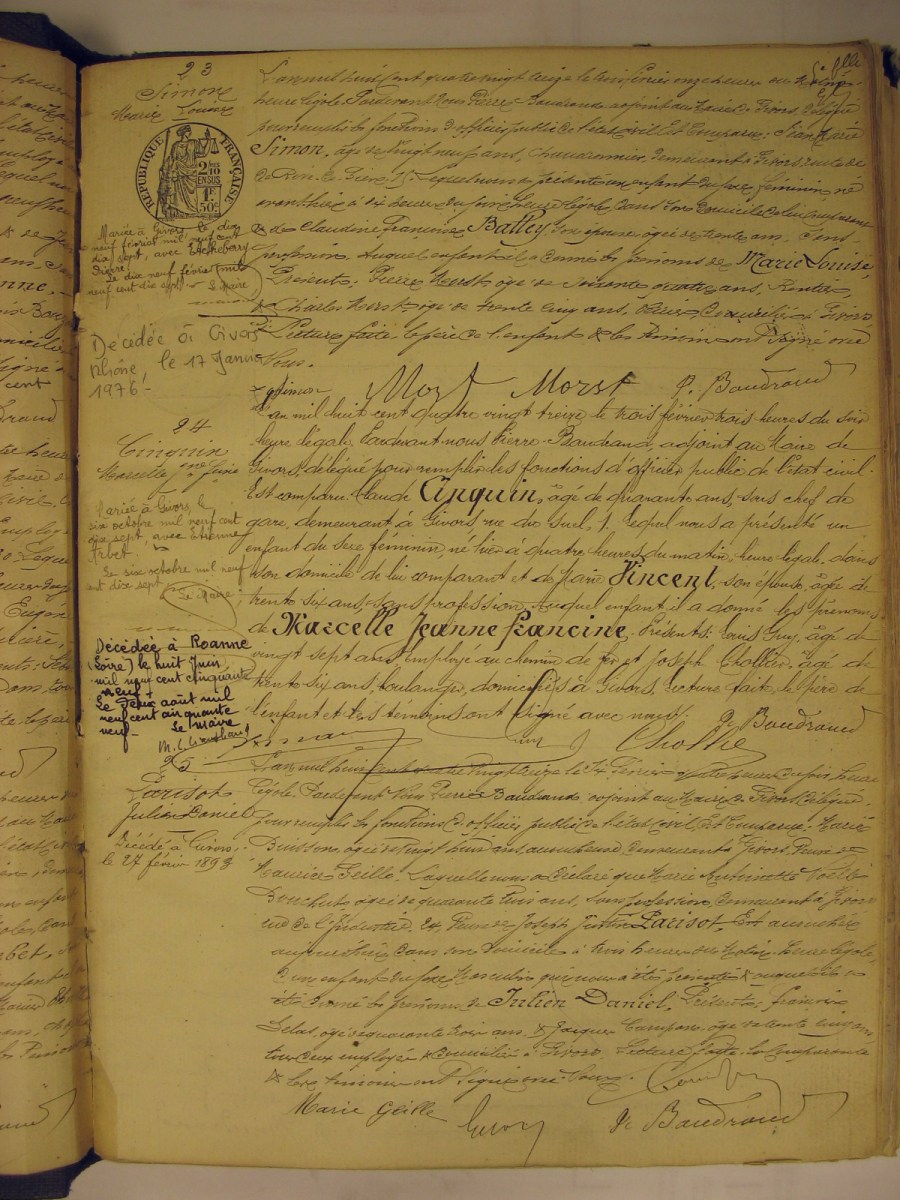 23
Simon
Marie Louise
RÉPUBLIQUE FRANÇAISE
2/10
EN SUS
1F
50C
Mariée à Givors le dix
neuf février mil neuf cent
dix sept, avec
Le dix neuf février mil
neuf cent dix sept Le Maire
Décédée à Givors
Rhône, le 17 Janvier
1976
L'an mil huit cent quatre vingt treize le trois février onze heures du matin
heure légale. Pardevant Nous Pierre Baudrand adjoint au Maire de Givors, délégué
pour remplir les fonctions d'officier public de l'état civil Est Comparu: Jean Marie
Simon, âgé de vingt neuf ans, demeurant à Givors route de
de Rive de Gier, 15. Lequel nous a présenté un enfant du sexe féminin, né
avant hier à dix heures du soir heure légale, dans son domicile de lui comparant
& de Claudine Françoise Balley son épouse âgée de trente ans, sans
profession, auquel enfant il a donné les prénoms de Marie Louise
Présents: Pierre âgé de soixante quatre ans, rentier,
& Charles âgé de trente cinq ans, domiciliés à Givors
Lecture faite, le père de l'enfant & les témoins ont signé avec
Nous.
Simon Morst Morst P. Baudrand
24
Cinquin
Marcelle Jne Fcine
Mariée à Givors, le
six octobre mil neuf cent
dix sept, avec Etienne
Arbet.
Le six octobre mil neuf
cent dix sept
Le Maire
Décédée à Roanne
(Loire) le huit Juin
mil neuf cent cinquante
neuf
Le août mil
neuf cent cinquante
neuf
Le Maire
L'an mil huit cent quatre vingt treize le trois février trois heures du soir
heure légale. Pardevant nous Pierre Baudrand, adjoint au Maire de
Givors, délégué pour remplir les fonctions d'officier public de l'état civil.
Est comparu Claude Cinquin, âgé de quarante ans, sous chef de
gare, demeurant à Givors rue du Suel, 1. Lequel nous a présenté un
enfant du sexe féminin, né hier à quatre heures du matin, heure légale, dans
son domicile de lui comparant et de Marie Vincent, son épouse, âgée de
trente six ans, sans profession, auquel enfant il a donné les prénoms
de Marcelle Jeanne Francine. Présents: Louis Guy, âgé de
vingt sept ans employé au chemin de fer et Joseph Chollier, âgé de
trente six ans, boulanger, domiciliés à Givors, lecture faite, le père de
l'enfant et les témoins ont signé avec nous.
P. Baudrand
25
Larisot
Julien Daniel
Décédé à Givors
le 27 février 1893
L'an mil huit cent quatre vingt treize le 4 Février heures du soir, heure
légale. Pardevant Nous Pierre Baudrand adjoint au Maire de Givors délégué
pour remplir les fonctions d'officier public de l'état civil, Est Comparue: Marie
Buisson, âgée de vingt huit ans, accoucheuse, demeurant à Givors, femme de
Maurice Geille. Laquelle nous a déclaré que Marie Antoinette
Bouchut âgée de quarante trois ans, sans profession, demeurant à Givors
rue de l'Industrie, & femme de Joseph Larisot, Est accouchée
aujourd'hui dans son domicile à trois heures du matin, heure légale,
d'un enfant du sexe Masculin qui nous a été présenté & auquel il a
été donné les prénoms de Julien Daniel. Présents: François
âgé de quarante trois ans & Jacques âgé de trente cinq ans
tous deux employés & domiciliés à Givors. Lecture faite, la Comparante
& les témoins ont signé avec Nous.
Marie Geille P. Baudrand